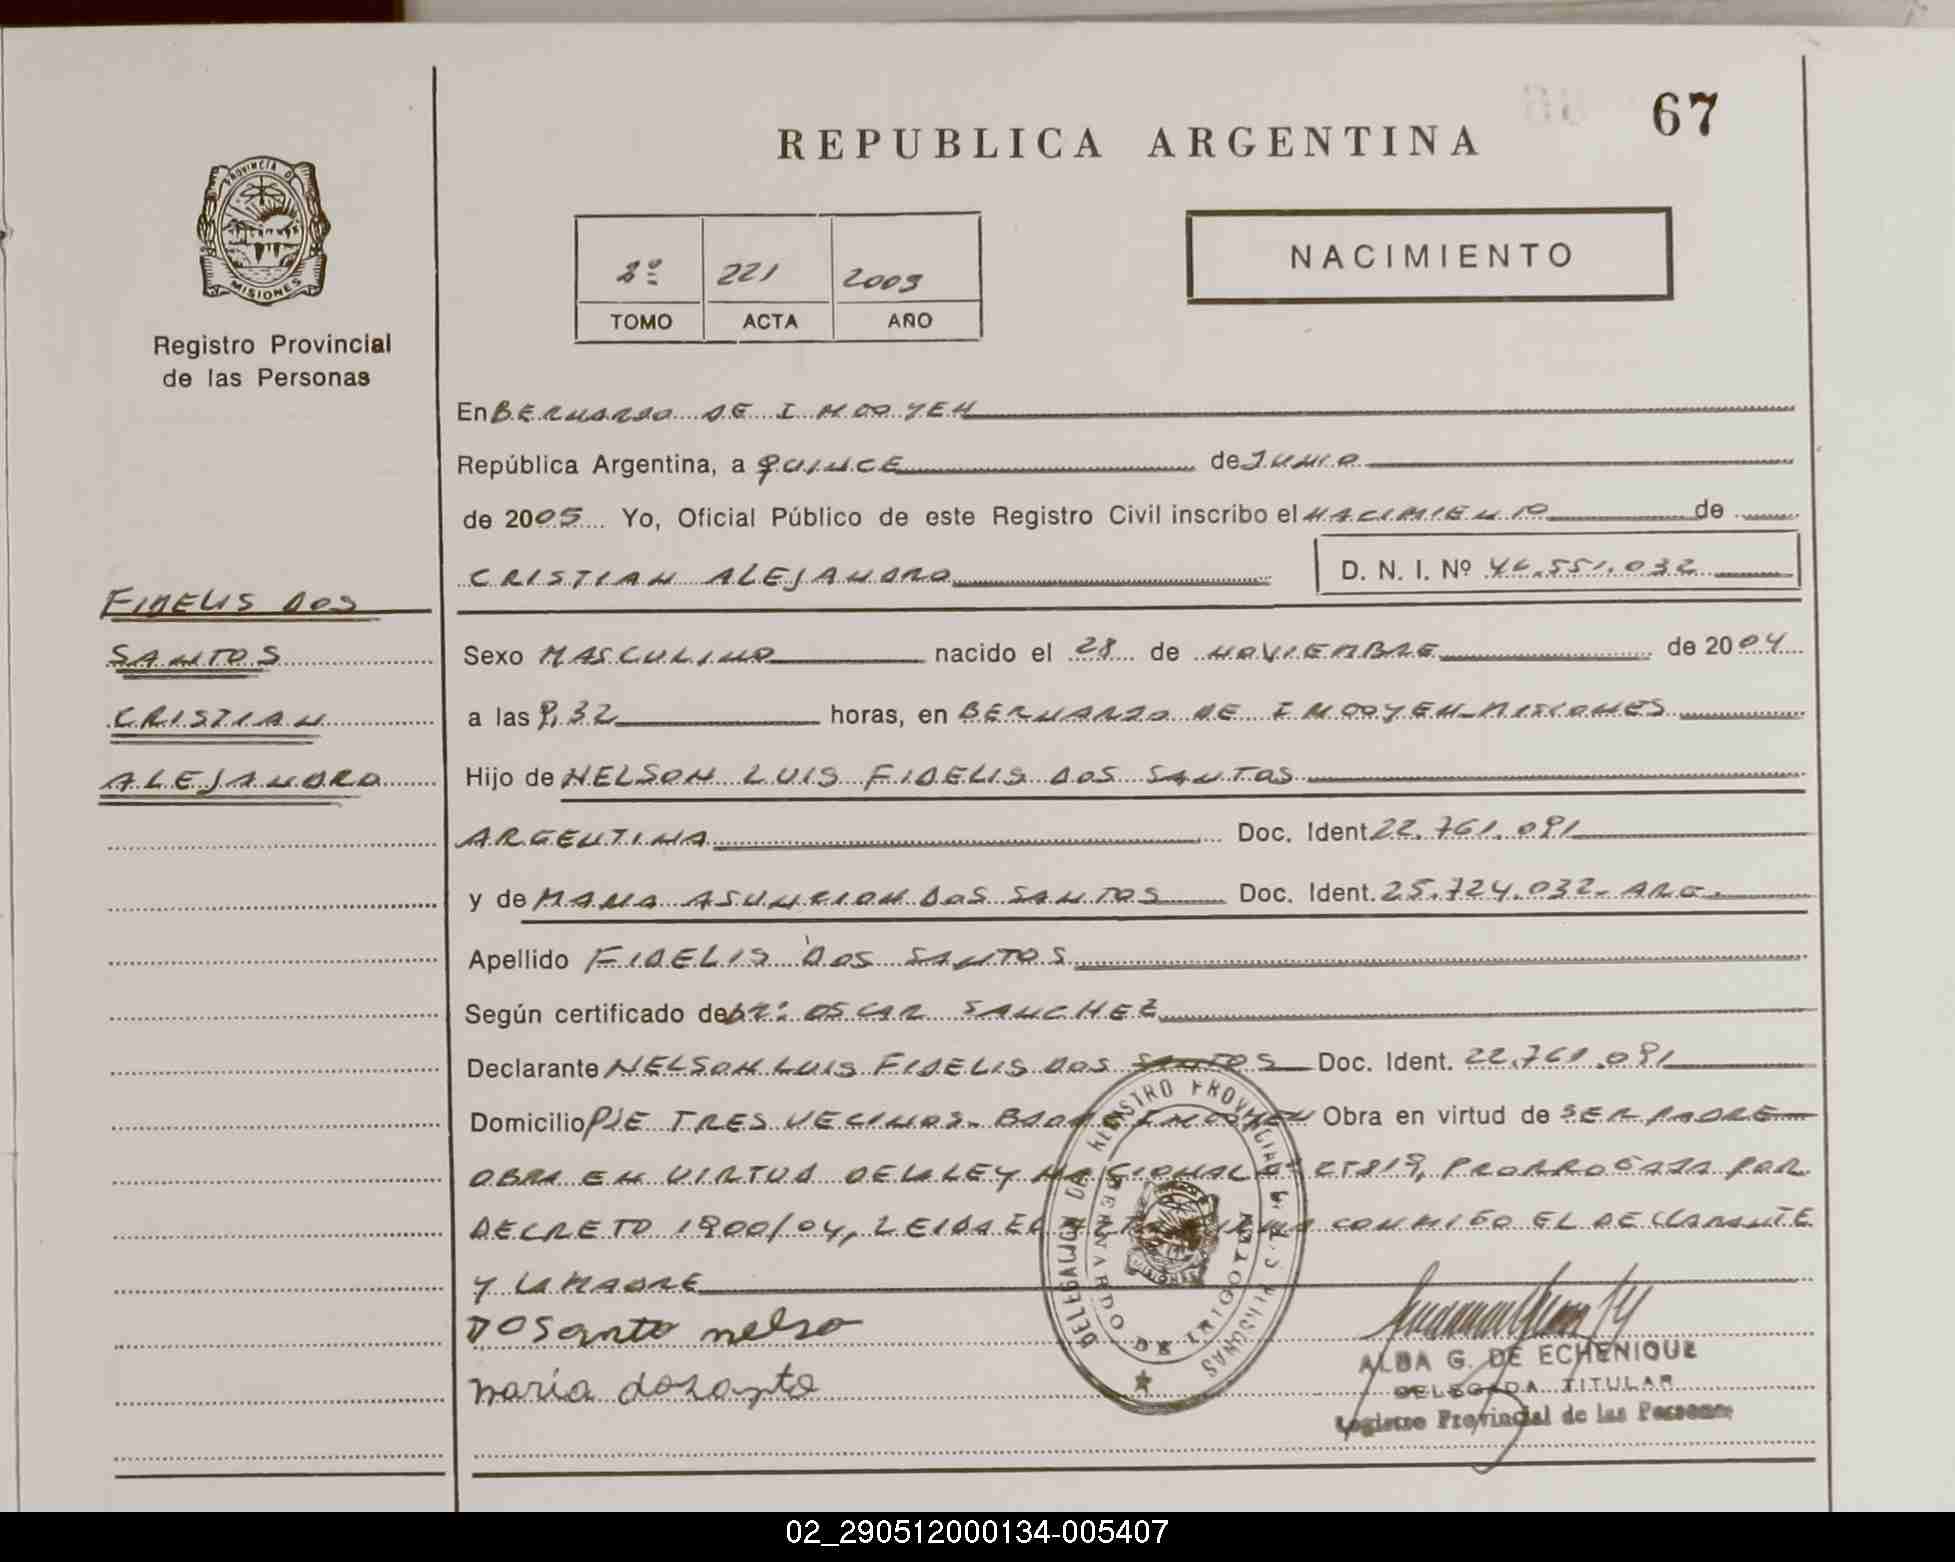 67
REPUBLICA ARGENTINA
PROVINCIA DE
MISIONES
Registro Provincial
de las Personas
NACIMIENTO
2º 221 2005
TOMO ACTA AÑO
En BERNARDO DE IRIGOYEN
República Argentina, a QUINCE de JUNIO
de 2005 Yo, Oficial Público de este Registro Civil inscribo el NACIMIENTO de
CRISTIAN ALEJANDRO D. N. I. Nº 46.551.032
FIDELIS DOS
SANTOS
CRISTIAN
ALEJANDRO
Sexo MASCULINO nacido el 28 de NOVIEMBRE de 2004
a las 9,32 horas, en BERNARDO DE IRIGOYEN-MISIONES
Hijo de NELSON LUIS FIDELIS DOS SANTOS
ARGENTINA Doc. Ident. 22.761.091
y de MARIA ASUNCION DOS SANTOS Doc. Ident. 25.724.032- ARG.
Apellido FIDELIS DOS SANTOS
Según certificado de Dr. OSCAR SANCHEZ
Declarante NELSON LUIS FIDELIS DOS SANTOS Doc. Ident. 22.761.091
Domicilio PJE TRES VECINOS- BDO DE IRIGOYEN Obra en virtud de SER PADRE
OBRA EN VIRTUD DE LA LEY NACIONAL Nº 25819, PRORROGADA POR
DECRETO 1900/04, LEIDA EL ACTA FIRMA CONMIGO EL DECLARANTE
Y LA MADRE
DOSanto nelso
maria dosanto
DELEGACION DEL REGISTRO PROVINCIAL DE LAS PERSONAS
BERNARDO DE IRIGOYEN
MISIONES
ALBA G. DE ECHENIQUE
DELEGADA TITULAR
Registro Provincial de las Personas
02_290512000134-005407